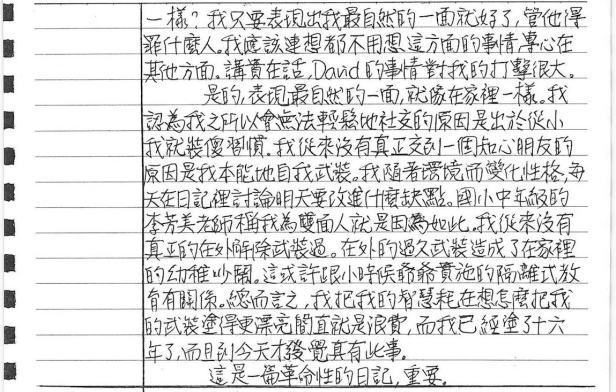 一樣？我只要表現出我最自然的一面就好了，管他得
罪什麼人。我應該連想都不用想這方面的事情，專心在
其他方面。講實在話，David的事情對我的打擊很大。
是的，表現最自然的一面，就像在家裡一樣。我
認為我之所以會無法輕鬆地社交的原因是出於從小
我就裝傻習慣。我從來沒有真正交到一個知心朋友的
原因是我本能地自我武裝。我隨著環境而變化性格，每
天在日記裡討論明天要改進什麼缺點。國小中年級的
李芳美老師稱我為雙面人就是因為如此。我從來沒有
真正的在外解除武裝過。在外的過久武裝造成了在家裡
的幼稚吵鬧。這或許跟小時候爺爺賁池的隔離式教
育有關係。總而言之，我把我的智慧耗在想怎麼把我
的武裝塗得更漂亮簡直就是浪費，而我已經塗了十六
年了，而且到今天才發覺真有此事。
這是一篇革命性的日記，重要。